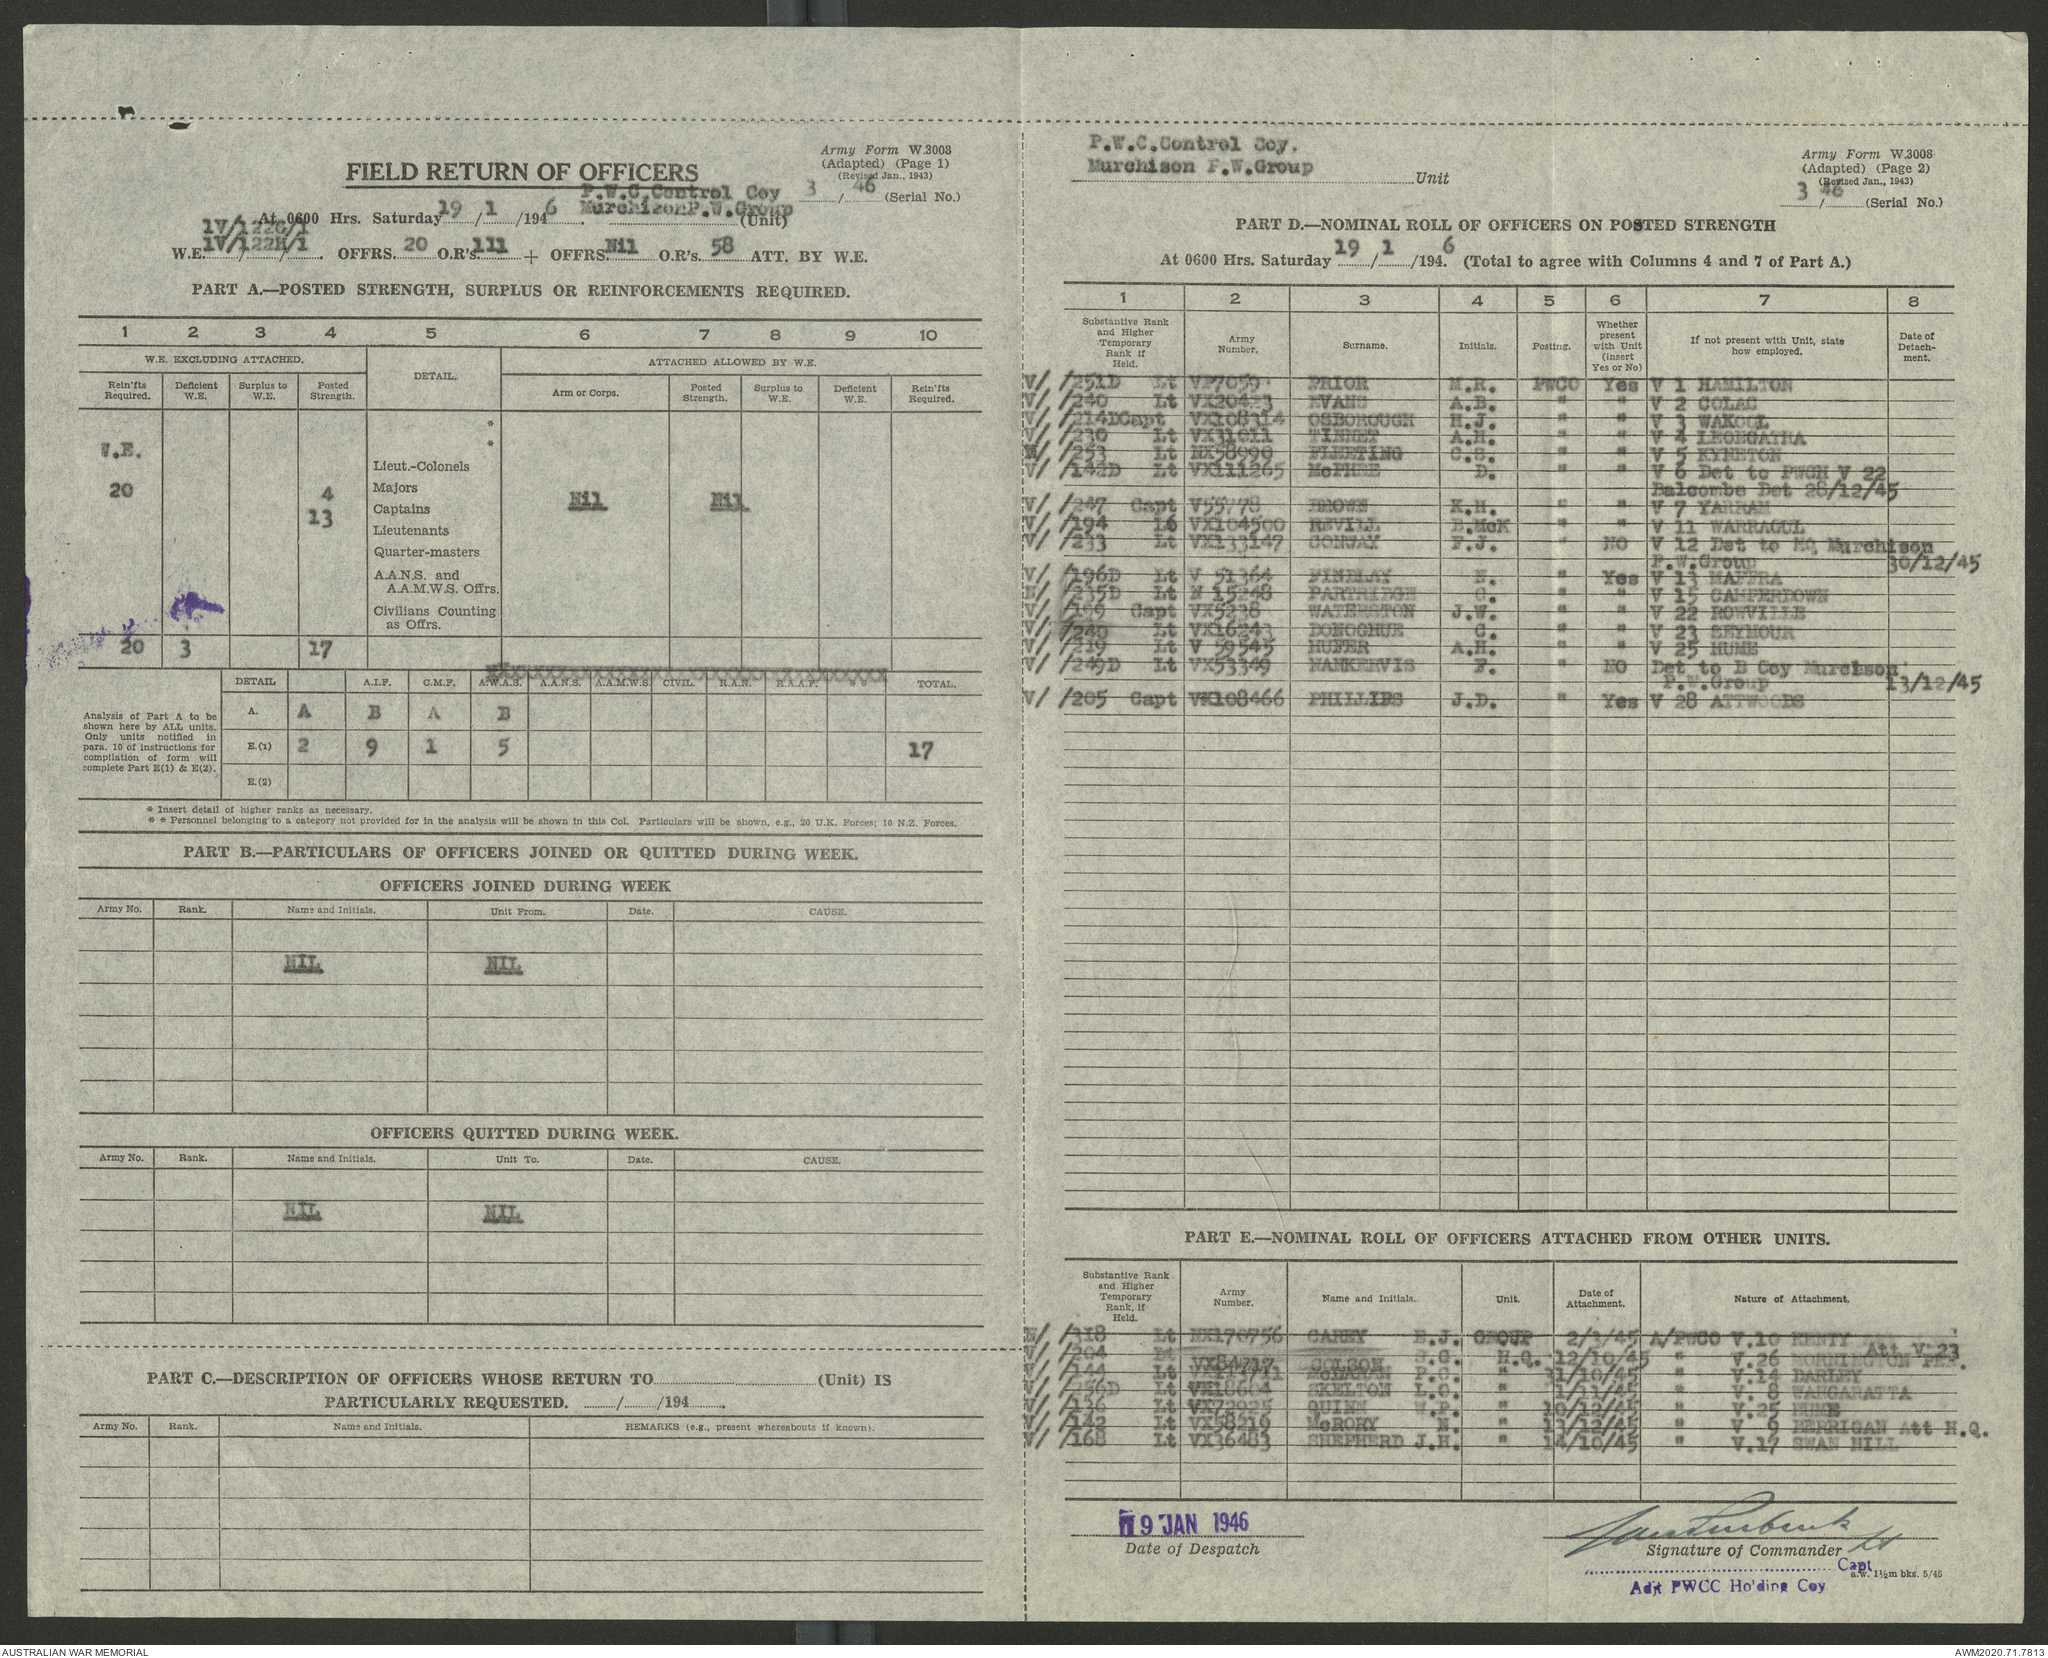 Army Form W.3008
(Adapted) (Page 1)
(Revised Jan., 1943)
3/46 (Serial No.)
FIELD RETURN OF OFFICERS
P.W.C.Control Coy
At 0600 Hrs. Saturday 19/1/1946 Murchison P.W.Group (Unit)
1V/122G/1
W.E. 1V/122H/1. OFFRS. 20 O.R's. 111 + OFFRS. Nil O.R's. 58 ATT. BY W.E.
PART A.—POSTED STRENGTH, SURPLUS OR REINFORCEMENTS REQUIRED.
1 2 3 4 5 6 7 8 9 10
W.E. EXCLUDING ATTACHED. DETAIL. ATTACHED ALLOWED BY W.E.
Rein'fts Required. Deficient W.E. Surplus to W.E. Posted Strength. Arm or Corps. Posted Strength. Surplus to W.E. Deficient W.E. Rein'fts Required.
*
*
W.E.
Lieut.-Colonels
20 4 Majors Nil Nil
13 Captains
Lieutenants
Quarter-masters
A.A.N.S. and
A.A.M.W.S. Offrs.
Civilians Counting
as Offrs.
20 3 17
DETAIL A.I.F. C.M.F. A.W.A.S. A.A.N.S. A.A.M.W.S. CIVIL. R.A.N. R.A.A.F. * * TOTAL.
Analysis of Part A to be shown here by ALL units. Only units notified in para. 10 of instructions for compilation of form will complete Part E(1) & E(2).
A. A B A B
E.(1) 2 9 1 5 17
E.(2)
* Insert detail of higher ranks as necessary.
* * Personnel belonging to a category not provided for in the analysis will be shown in this Col. Particulars will be shown, e.g., 20 U.K. Forces; 10 N.Z. Forces.
PART B.—PARTICULARS OF OFFICERS JOINED OR QUITTED DURING WEEK.
OFFICERS JOINED DURING WEEK
Army No. Rank. Name and Initials. Unit From. Date. CAUSE.
NIL NIL
OFFICERS QUITTED DURING WEEK.
Army No. Rank. Name and Initials. Unit To. Date. CAUSE.
NIL NIL
PART C.—DESCRIPTION OF OFFICERS WHOSE RETURN TO (Unit) IS
PARTICULARLY REQUESTED. / /194 .
Army No. Rank. Name and Initials. REMARKS (e.g., present whereabouts if known).
P.W.C.Control Coy.
Murchison P.W.Group Unit
Army Form W.3008
(Adapted) (Page 2)
(Revised Jan., 1943)
3/46 (Serial No.)
PART D.—NOMINAL ROLL OF OFFICERS ON POSTED STRENGTH
At 0600 Hrs. Saturday 19/1/1946. (Total to agree with Columns 4 and 7 of Part A.)
1 2 3 4 5 6 7 8
Substantive Rank and Higher Temporary Rank if Held. Army Number. Surname. Initials. Posting. Whether present with Unit (insert Yes or No) If not present with Unit, state how employed. Date of Detachment.
V/ /251D Lt VP7059 PRIOR M.R. PWCO Yes V 1 HAMILTON
V/ /240 Lt VX20423 EVANS A.B. " " V 2 COLAC
V/ /214D Capt VX108314 OSBOROUGH H.J. " " V 3 WAKOOL
V/ /230 Lt VX31011 A.H. " " V 4 LEONGATHA
/253 Lt NX58999 C.S. " " V 5 KYNETON
V/ /142D Lt VX111265 McPHEE D. " " V 6 Det to PWCH V 22
Balcombe Det 28/12/45
V/ /247 Capt V55778 BROWN K.H. " " V 7 YARRAM
V/ /194 Lt VX104500 REVILL B.McK " " V 11 WARRAGUL
V/ /233 Lt VX133147 CONWAY F.J. " NO V 12 Det to HQ Murchison
P.W.Group 30/12/45
V/ /196D Lt V 51364 FINDLAY N. " Yes V 13 MAFFRA
N/ /235D Lt N 15248 PARTRIDGE C. " " V 15 CAMPERDOWN
V/ /199 Capt VX5238 WATERSTON J.W. " " V 22 ROWVILLE
V/ /240 Lt VX16243 DONOGHUE C. " " V 23 SEYMOUR
V/ /219 Lt V 59545 HUFER A.H. " " V 25 HUME
V/ /249D Lt VX53349 NANKERVIS F. " NO Det to B Coy Murchison
P.W.Group 13/12/45
V/ /205 Capt VX108466 PHILLIPS J.D. " Yes V 28 ATTWOODS
PART E.—NOMINAL ROLL OF OFFICERS ATTACHED FROM OTHER UNITS.
Substantive Rank and Higher Temporary Rank, if Held. Army Number. Name and Initials. Unit. Date of Attachment. Nature of Attachment.
N/ /318 Lt NX170756 CAREY E.J. GROUP 2/3/45 A/PWCO V.10 HENTY Att V.23
V/ /204 Lt VX84717 COLSON S.G. H.Q. 12/10/45 " V.26 MORNINGTON PEN.
V/ /144 Lt McLARAN P.C. " 31/10/45 " V.14 DARLEY
V/ /256D Lt VX18604 SKELTON L.C. " 1/11/45 " V.8 WANGARATTA
V/ /136 Lt VX72925 QUINN W.P. " 10/12/45 " V.25 HUME
V/ /142 Lt VX58216 McRORY N. " 13/12/45 " V 9 BERRIGAN Att H.Q.
V/ /168 Lt VX36483 SHEPHERD J.H. " 14/10/45 " V.17 SWAN HILL
19 JAN 1946
Date of Despatch
Signature of Commander
Capt
Adjt PWCC Holding Coy
a.w. 1½m bks. 5/45
AUSTRALIAN WAR MEMORIAL
AWM2020.71.7813